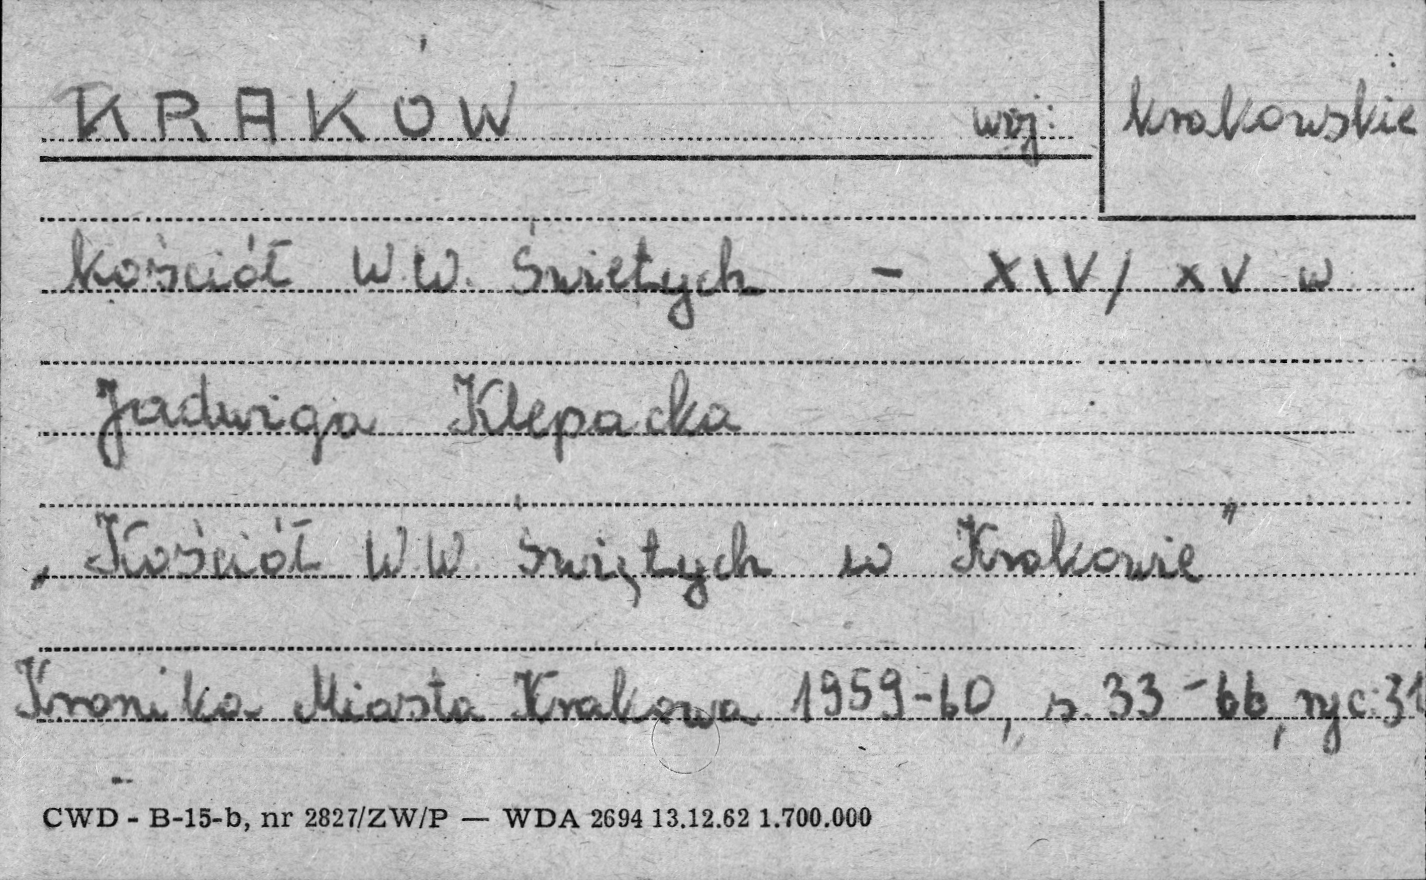 KRAKÓW woj: krakowskie
kościół W.W. Świetych - XIV/XV w
Jadwiga Klepacka
„Kościół W W Świętych w Krakowie"
Kronika Miasta Krakowa 1959-60, s. 33-66, ryc: 31
CWD - B-15-b, nr 2827/ZW/P — WDA 2694 13.12.62 1.700.000